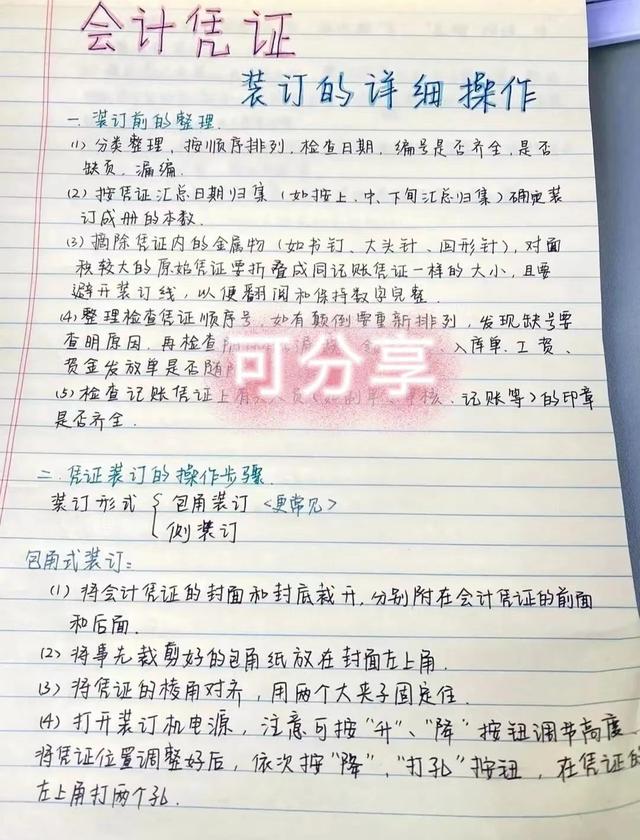 会计凭证
装订的详细操作
一.装订前的整理.
(1) 分类整理，按顺序排列，检查日期，编号是否齐全，是否
缺页，漏编.
(2) 按凭证汇总日期归集（如按上、中、下旬汇总归集）确定装
订成册的本数.
(3) 摘除凭证内的金属物（如书钉、大头针、回形针），对面
积较大的原始凭证要折叠成同记账凭证一样的大小，且要
避开装订线，以便翻阅和保持数字完整.
(4) 整理检查凭证顺序号，如有颠倒要重新排列，发现缺号要
查明原因，再检查 入库单、工资、
资金发放单是否随
可分享
(5) 检查记账凭证上有 核、记账等）的印章
是否齐全.
二.凭证装订的操作步骤.
装订形式 { 包角装订 <更常见>
侧装订
包角式装订：
(1) 将会计凭证的封面和封底裁开，分别附在会计凭证的前面
和后面.
(2) 将事先裁剪好的包角纸放在封面左上角.
(3) 将凭证的棱角对齐，用两个大夹子固定住.
(4) 打开装订机电源，注意可按“升”、“降”按钮调节高度
将凭证位置调整好后，依次按“降”、“打孔”按钮，在凭证的
左上角打两个孔.